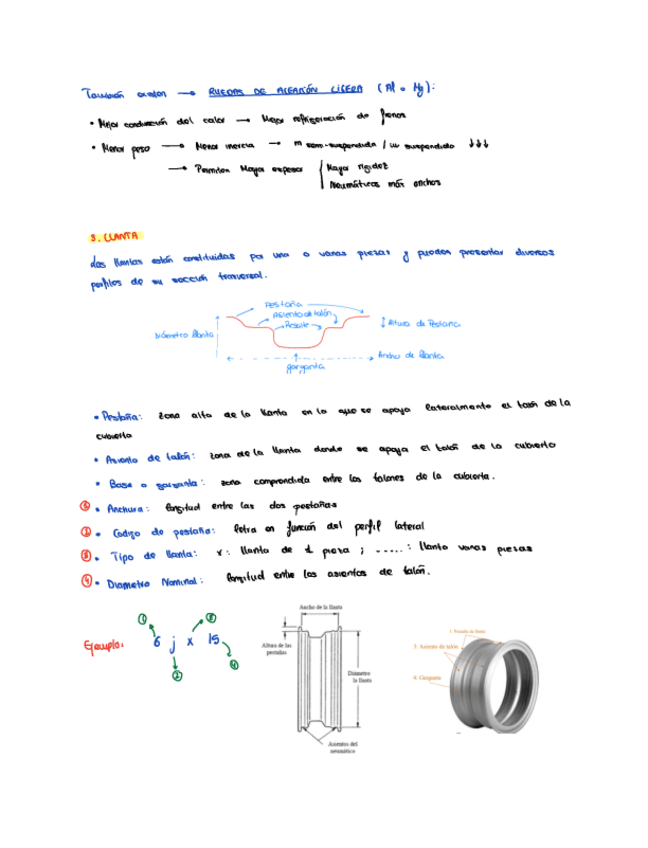 También existen → RUEDAS DE ALEACIÓN LIGERA (Al o Mg):
• Mejor conducción del calor → Mejor refrigeración de frenos
• Menor peso → Menor inercia → m semi-suspendida / m suspendida ↓↓↓
→ Permiten Mayor espesor
Mayor rigidez
Neumáticos más anchos
3. LLANTA
Las llantas están constituidas por una o varias piezas y pueden presentar diversos
perfiles de su sección transversal.
Pestaña
Asiento de talón
Resalte
Diámetro llanta
Altura de Pestaña
Ancho de llanta
garganta
• Pestaña: zona alta de la llanta en la que se apoya lateralmente el talón de la
cubierta
• Asiento de talón: zona de la llanta donde se apoya el talón de la cubierta
• Base o garganta: zona comprendida entre los talones de la cubierta.
① • Anchura: longitud entre las dos pestañas
② • Codigo de pestaña: letra en función del perfil lateral
③ • Tipo de llanta: x: llanta de 1 pieza ; -----: llanta varias piezas
④ • Diametro Nominal: longitud entre los asientos de talón.
Ejemplo:
① ③
6 j x 15
② ④
Ancho de la llanta
Altura de las
pestañas
Diámetro
la llanta
Asientos del
neumático
1: Pestaña de llanta
3: Asiento de talón
4: Garganta